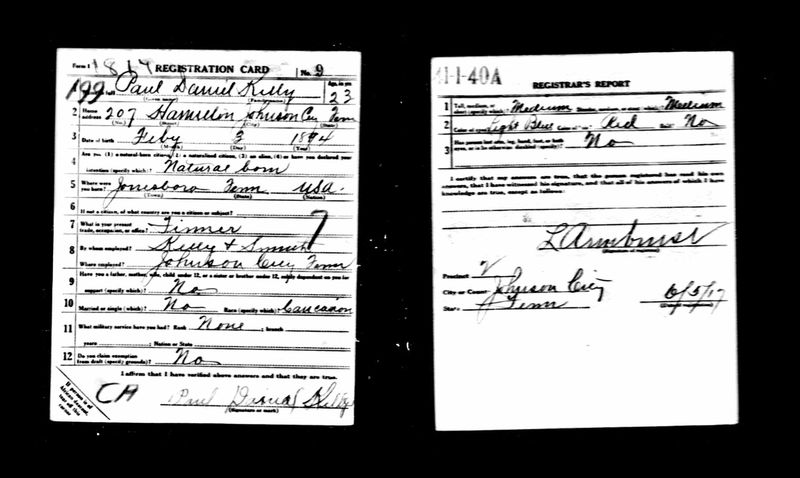 Form 1 1814 REGISTRATION CARD No. 9
199 Paul Daniel Kelly Age, in yrs. 23
2 Home address 207 Hamilton Johnson City Tenn
(No.) (Street) (City) (State)
3 Date of birth Feby 3 1894
(Month) (Day) (Year)
4 Are you (1) a natural-born citizen, (2) a naturalized citizen, (3) an alien, (4) or have you declared your
intention (specify which)? Natural born
5 Where were you born? Jonesboro Tenn USA.
(Town) (State) (Nation)
6 If not a citizen, of what country are you a citizen or subject?
7 What is your present trade, occupation, or office? Tinner 7
8 By whom employed? Kelly +
Where employed? Johnson City Tenn
9 Have you a father, mother, wife, child under 12, or a sister or brother under 12, solely dependent on you for
support (specify which)? No
10 Married or single (which)? No Race (specify which)? Caucasian
11 What military service have you had? Rank None ; branch
years ; Nation or State
12 Do you claim exemption from draft (specify grounds)? No
I affirm that I have verified above answers and that they are true.
CA Paul Kelly
(Signature or mark)
If person is of African descent, tear off this corner
41-1-40A
REGISTRAR'S REPORT
1 Tall, medium, or short (specify which)? Medium Slender, medium, or stout (which)? Medium
2 Color of eyes? Light Blue Color of hair? Red Bald? No
3 Has person lost arm, leg, hand, foot, or both eyes, or is he otherwise disabled (specify)? No
I certify that my answers are true, that the person registered has read his own
answers, that I have witnessed his signature, and that all of his answers of which I have
knowledge are true, except as follows:
L Armbrust
(Signature of registrar)
Precinct 2
City or County Johnson City
State Tenn 6/5/17